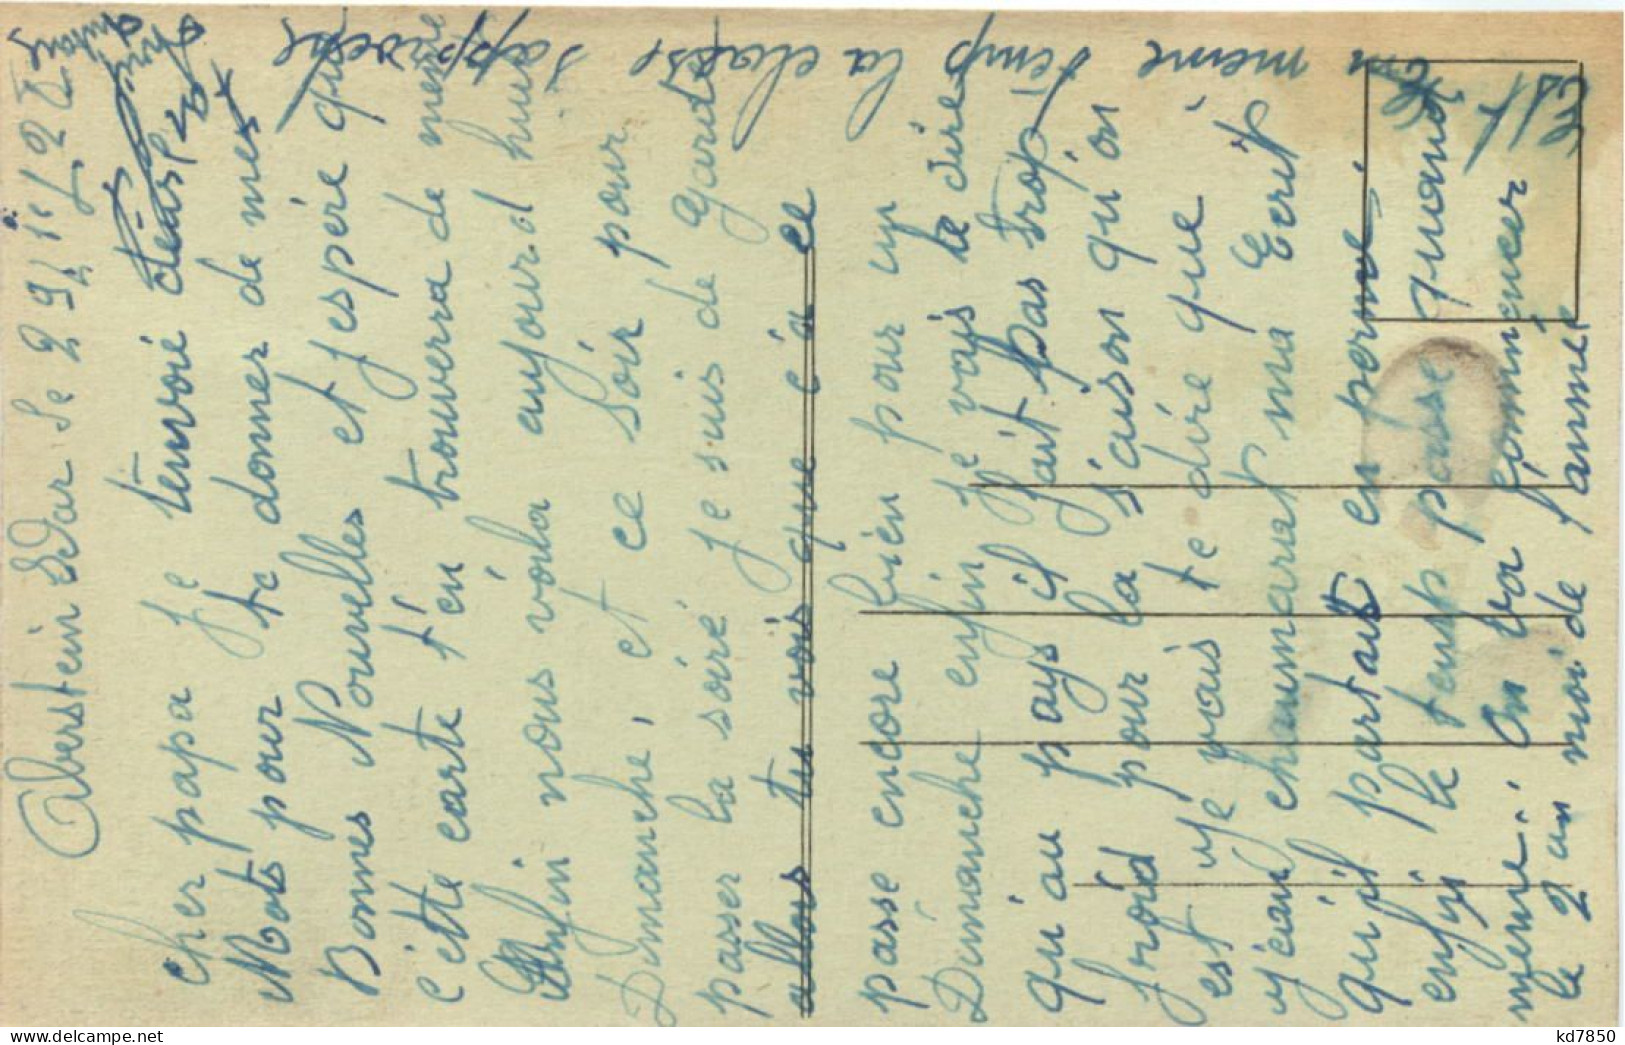 Oberstein Idar le 29/1/21
cher papa je t'envoie deus
Mots pour te donner de mes
Bonnes Nouvelles et j'espère que
cette carte t'en trouvera de meme
Enfin nous voila aujourd hui
Dimanche, et ce soir pour
passer la soiré je suis de garde
allors tu vois que ça ce
passe encore bien pour un
Dimanche enfin je vais te dire
qu'au pays il fait pas trop
froid pour la saison qu'on
est je vais te dire que
jean chaumaret ma Ecrit
qu'il partait en permé
enfin le temp passe quand
meme. on va commencer
le 2 an moi de l'année
en meme temp la classe
s'approche
ton fils
kd7850